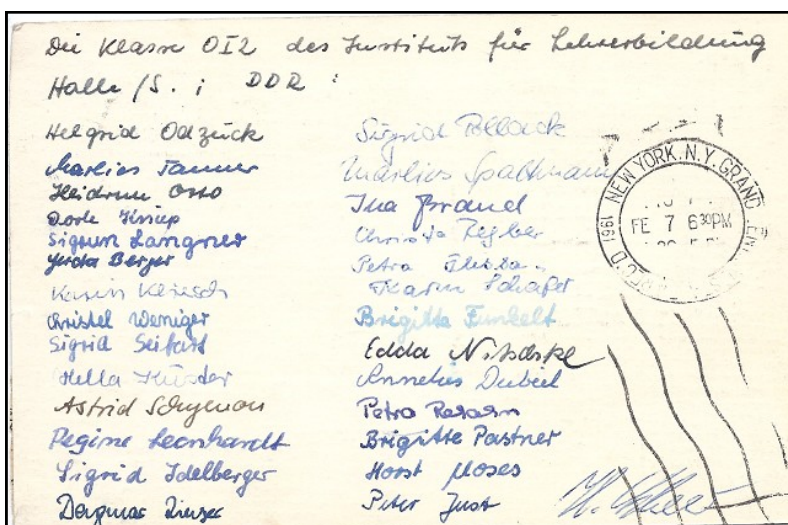 Die Klasse OI2 des Instituts für Lehrerbildung
Halle /S. ; DDR :
Helgrid Odzuck
Marlies Tanner
Heidrun Otto
Dorle
Sigrun Langner
Gerda Berger
Karin
Christel Weniger
Sigrid Seifart
Hella Küster
Astrid
Regine Leonhardt
Sigrid Idelberger
Dagmar
Sigrid Pollack
Marlies Spaltmann
Ina Brand
Christa
Petra
Karin Schäfer
Brigitte Funkelt
Edda Nitschke
Annelies Dubiel
Petra
Brigitte Pastner
Horst Moses
Peter Just
NEW YORK, N.Y. GRAND
1961
FE 7 630PM
REC'D